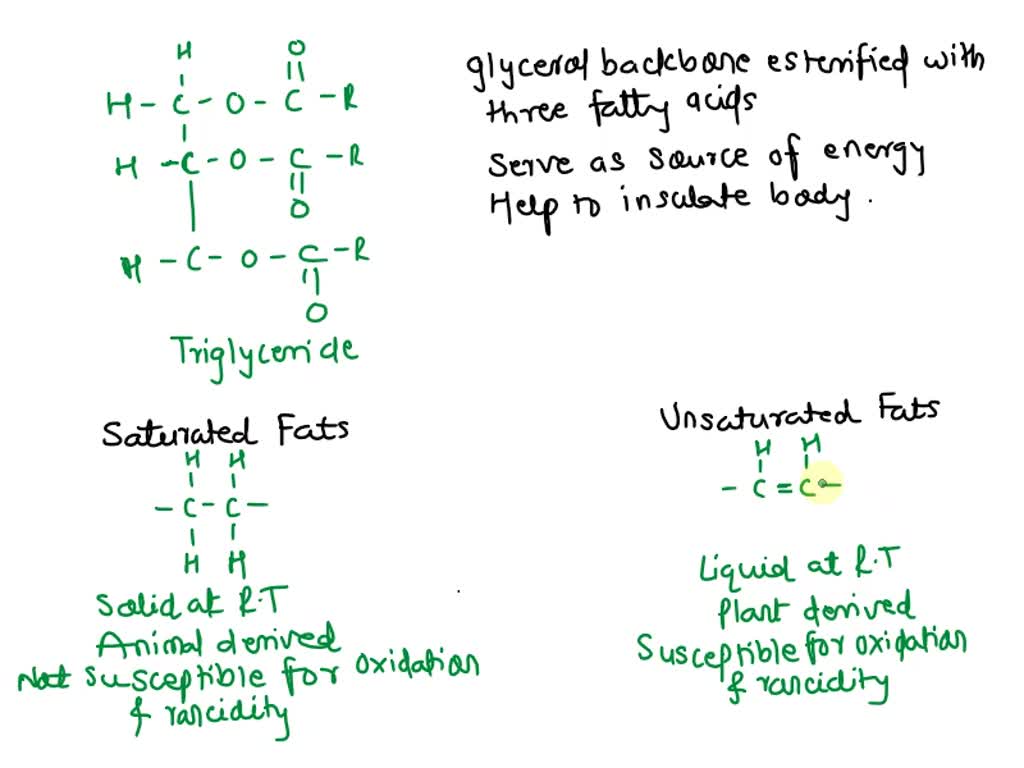 H O
|| 
H - C - O - C - R
H - C - O - C - R
||
O
H - C - O - C - R
||
O
Triglyceride
glycerol backbone esterified with
three fatty acids
Serve as source of energy
Help to insulate body.
Saturated Fats
H H
- C - C -
H H
Solid at R.T
Animal derived
Not susceptible for oxidation
& rancidity
Unsaturated Fats
H H
- C = C -
Liquid at R.T
Plant derived
Susceptible for oxidation
& rancidity